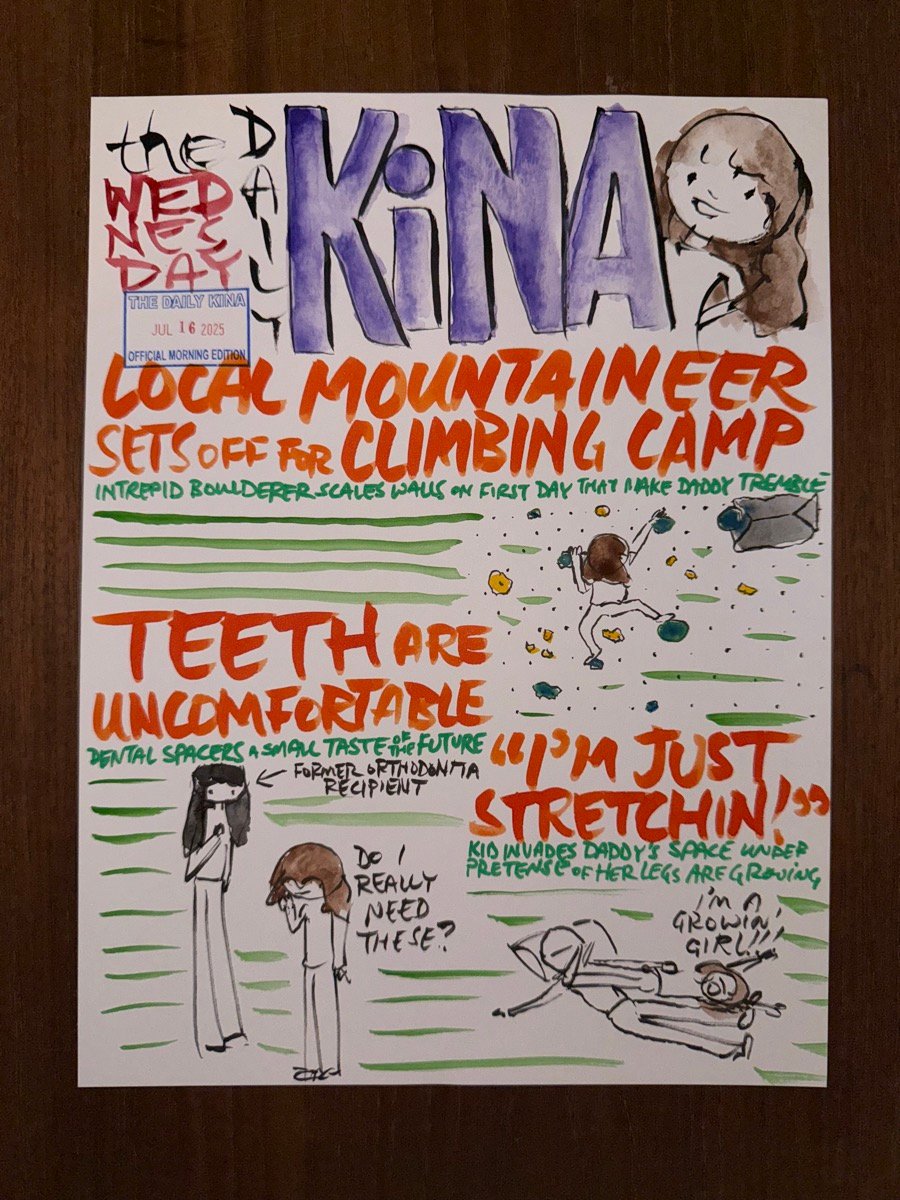 the
WED
NES
DAY
DAILY
KiNA
THE DAILY KINA
JUL 16 2025
OFFICIAL MORNING EDITION
LOCAL MOUNTAINEER
SETS OFF FOR CLIMBING CAMP
INTREPID BOULDERER SCALES WALLS ON FIRST DAY THAT MAKE DADDY TREMBLE
TEETH ARE
UNCOMFORTABLE
DENTAL SPACERS A SMALL TASTE OF THE FUTURE
← FORMER ORTHODONTIA
RECIPIENT
DO I
REALLY
NEED
THESE?
“I’M JUST
STRETCHIN!”
KID INVADES DADDY'S SPACE UNDER
PRETENSE OF HER LEGS ARE GROWING
I'M A
GROWIN'
GIRL!!!